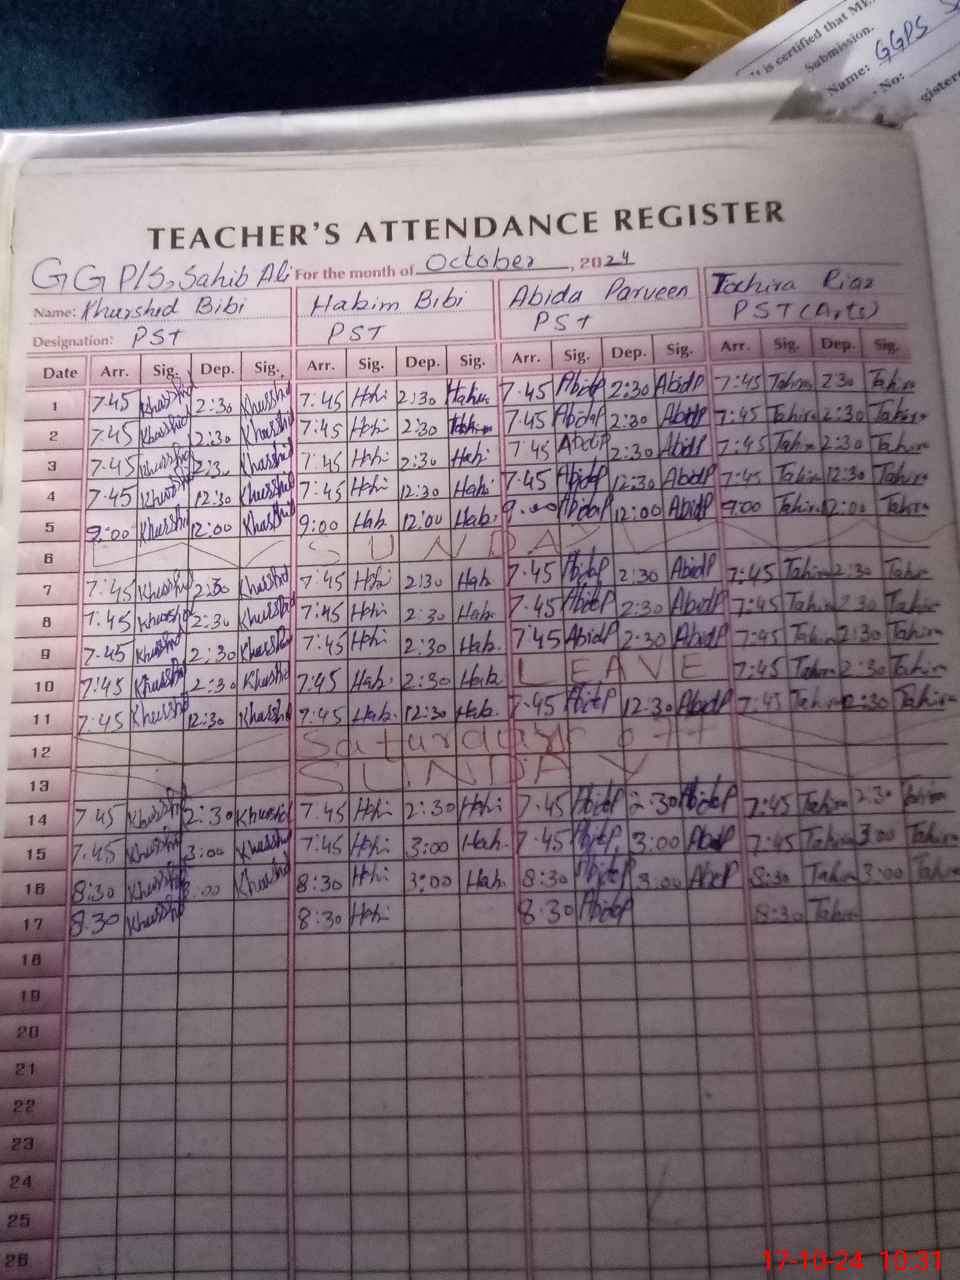 It is certified that ME
Submission.
Name: GGPS
No:
gisters
TEACHER'S ATTENDANCE REGISTER
GG P/S, Sahib Ali For the month of October, 2024
Name: Khurshid Bibi Hakim Bibi Abida Parveen Tahira Riaz
Designation: PST PST PST PST (Arts)
Date Arr. Sig. Dep. Sig. Arr. Sig. Dep. Sig. Arr. Sig. Dep. Sig. Arr. Sig. Dep. Sig.
1 7:45 Khurshid 2:30 Khurshid 7:45 2:30 7:45 AbidP 2:30 AbidP 7:45 Tahira 2:30 Tahira
2 7:45 Khurshid 2:30 Khurshid 7:45 2:30 7:45 AbidP 2:30 AbidP 7:45 Tahira 2:30 Tahira
3 7:45 Khurshid 2:30 Khurshid 7:45 2:30 Hak. 7:45 AbidP 2:30 AbidP 7:45 Tahira 2:30 Tahira
4 7:45 Khurshid 12:30 Khurshid 7:45 12:30 Hak. 7:45 AbidP 12:30 AbidP 7:45 Tahira 12:30 Tahira
5 9:00 Khurshid 12:00 Khurshid 9:00 Hak. 12:00 Hak. 9:00 AbidP 12:00 AbidP 9:00 Tahira 12:00 Tahira
6 SUNDAY
7 7:45 Khurshid 2:30 Khurshid 7:45 2:30 Hak. 7:45 AbidP 2:30 AbidP 7:45 Tahira 2:30 Tahira
8 7:45 Khurshid 2:30 Khurshid 7:45 2:30 Hak. 7:45 AbidP 2:30 AbidP 7:45 Tahira 2:30 Tahira
9 7:45 Khurshid 2:30 Khurshid 7:45 2:30 Hak. 7:45 AbidP 2:30 AbidP 7:45 Tahira 2:30 Tahira
10 7:45 Khurshid 2:30 Khurshid 7:45 Hak. 2:30 Hak. LEAVE 7:45 Tahira 2:30 Tahira
11 7:45 Khurshid 12:30 Khurshid 7:45 Hak. 12:30 Hak. 7:45 AbidP 12:30 AbidP 7:45 Tahira 12:30 Tahira
12 Saturday off
13 SUNDAY
14 7:45 Khurshid 2:30 Khurshid 7:45 2:30 7:45 AbidP 2:30 AbidP 7:45 Tahira 2:30 Tahira
15 7:45 Khurshid 3:00 Khurshid 7:45 3:00 Hak. 7:45 AbidP 3:00 AbidP 7:45 Tahira 3:00 Tahira
16 8:30 Khurshid 3:00 Khurshid 8:30 3:00 Hak. 8:30 AbidP 3:00 AbidP 8:30 Tahira 3:00 Tahira
17 8:30 Khurshid 8:30 8:30 AbidP 8:30 Tahira
18
19
20
21
22
23
24
25
26
17-10-24 10:31